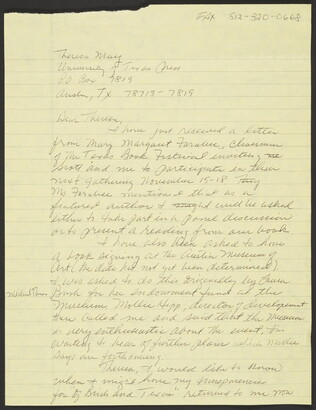 FAX 512-320-0668
Theresa May
University of Texas Press
P.O. Box 7819
Austin, TX 78713-7819
Dear Theresa,
I have just received a letter
from Mary Margaret Farabee, Chairman
of The Texas Book Festival inviting
Scott and me to participate in their
next gathering November 15-18.
Ms Farabee mentions that as a
featured author I might will be asked
either to take part in a panel discussion
or to present a reading from our book
I have also been asked to have
a book signing at the Austin Museum of
Art (the date has not yet been determined)
I was asked to do this originally by Laura
Bush for her endowment fund at the
Museum. Mollie director of development
there called me and said that the Museum
is very enthusiastic about the event, I'm
waiting to hear of further plans
are forthcoming.
Theresa, I would like to know
when I might have my transparencies
for Birds and Texas returned to me